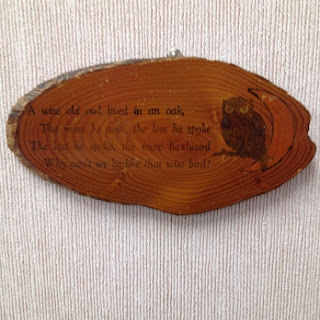 A wise old owl lived in an oak,
The more he saw, the less he spoke
The less he spoke, the more he heard
Why can't we be like that wise bird?